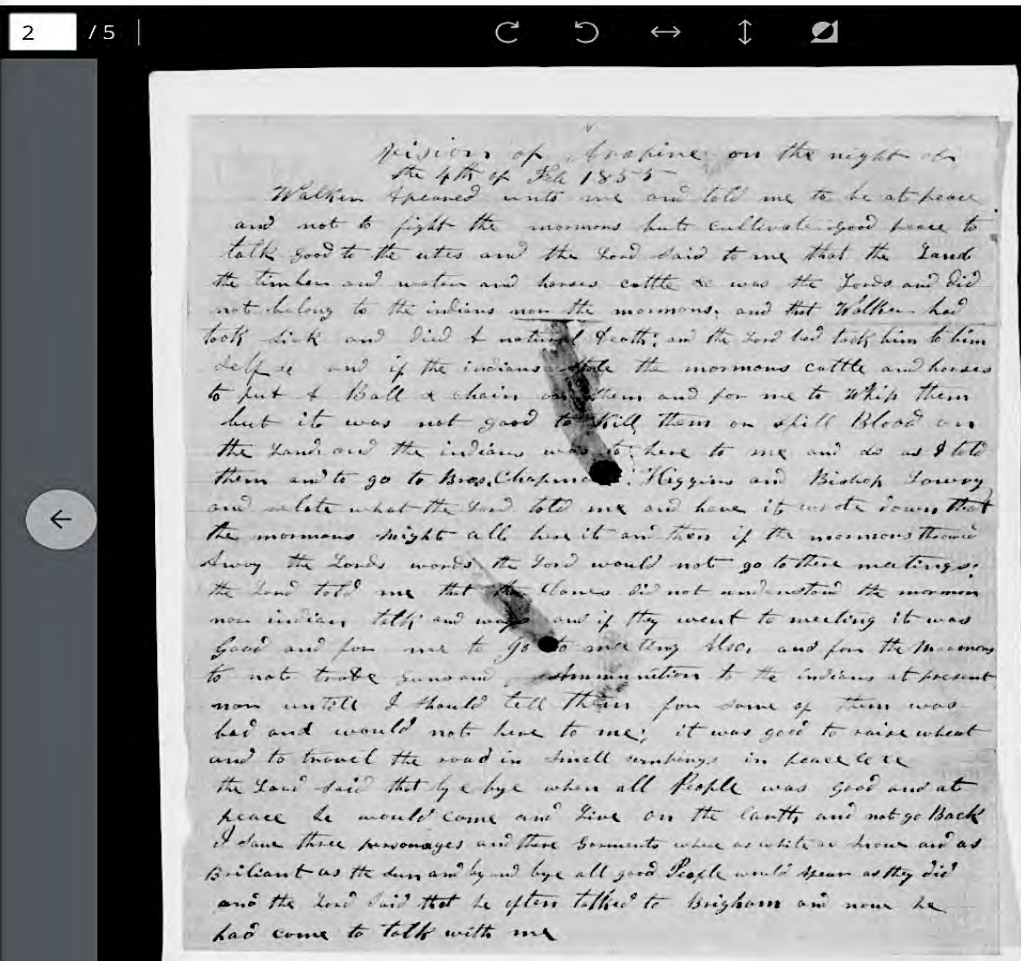 2 / 5
Vision of Arapine on the night of
the 4th of Feb 1855
Walker Apeared unto me and told me to be at peace
and not to fight the mormons but cultivate good peace to
talk good to the utes and the Lord said to me that the Land
the timber and water and horses cattle &c was the Lords and did
not belong to the indians nor the mormons, and that Walker had
took sick and died A natural Death; and the Lord had took him to him
self &c and if the indians stole the mormons cattle and horses
to put A Ball & chain on them and for me to Whip them
but it was not good to Kill them or spill Blood on
the Land and the indians was to here to me and do as I told
them and to go to Bros. Chapman Higgins and Bishop Lowry
and relate what the Lord told me and have it wrote down that
the mormons might all here it and then if the mormons throwed
Away the Lords words the Lord would not go to there meetings;
the Lord told me that the did not understand the mormon
nor indian talk and ways and if they went to meeting it was
Good and for me to go to meeting Also, and for the Mormons
to not trade guns and Ammunition to the indians at present
nor untell I should tell them for some of them was
bad and would not here to me; it was good to raise wheat
and to travel the road in small companys in peace &c &c
the Lord said that by & bye when all People was good and at
peace he would come and Live on the Earth and not go Back
I saw three personages and there Garments where as white as snow and as
Briliant as the sun and by and bye all good People would Apear as they did
and the Lord said that he often talked to Brigham and now he
had come to talk with me